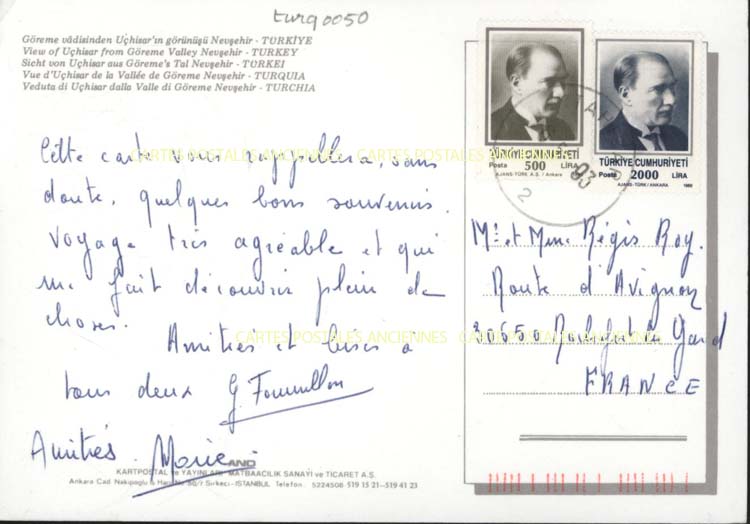 turq0050
Göreme vâdisinden Uçhisar'ın görünüşü Nevşehir - TÜRKİYE
View of Uçhisar from Göreme Valley Nevşehir - TURKEY
Sicht von Uçhisar aus Göreme's Tal Nevşehir - TÜRKEI
Vue d'Uçhisar de la Vallée de Göreme Nevşehir - TURQUIA
Veduta di Uçhisar dalla Valle di Göreme Nevşehir - TURCHIA
Cette carte vous rappellera, sans
doute, quelques bons souvenirs.
Voyage très agréable et qui
me fait découvrir plein de
choses.
Amitiés et bises à
tous deux G. Fournillon
Amitiés. Marie
AND
KARTPOSTAL ve YAYINLARI MATBAACILIK SANAYİ ve TİCARET A.Ş.
Ankara Cad. Nakipoğlu Han No 80/7 Sirkeci-ISTANBUL Telefon: 5224508-519 15 21-519 41 23
TÜRKİYE CUMHURİYETİ
Posta 500 LİRA
AJANS-TÜRK A.Ş. / Ankara
TÜRKİYE CUMHURİYETİ
Posta 2000 LİRA
AJANS-TÜRK/ANKARA 1989
Mr et Mme Régis Roy.
Route d'Avignon
30650 Rochefort du Gard
FRANCE
CARTES POSTALES ANCIENNES CARTES POSTALES ANCIENNES
CARTES POSTALES ANCIENNES CARTES POSTALES ANCIENNES